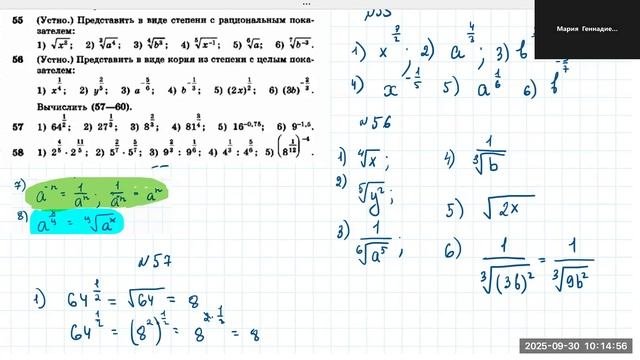 55 (Устно.) Представить в виде степени с рациональным пока-
зателем:
1) √x³; 2) ∛a⁴; 3) ⁴√b³; 4) ⁵√x⁻¹; 5) ⁶√a; 6) ⁷√b⁻³.
56 (Устно.) Представить в виде корня из степени с целым пока-
зателем:
1) x^(1/4); 2) y^(2/5); 3) a^(-5/6); 4) b^(-1/3); 5) (2x)^(1/2); 6) (3b)^(-2/3).
Вычислить (57—60).
57 1) 64^(1/2); 2) 27^(1/3); 3) 8^(2/3); 4) 81^(3/4); 5) 16^(-0,75); 6) 9^(-1,5).
58 1) 2^(4/5) · 2^(11/5); 2) 5^(2/7) · 5^(5/7); 3) 9^(2/3) : 9^(1/6); 4) 4^(1/3) : 4^(5/6); 5) (8^(1/12))^(-4).
7) a⁻ⁿ = 1/aⁿ; 1/a⁻ⁿ = aⁿ
8) a^(x/y) = ʸ√aˣ
№57
1) 64^(1/2) = √64 = 8
64^(1/2) = (8²)^(1/2) = 8^(2·1/2) = 8
№55
1) x^(3/2); 2) a^(4/3); 3) b
4) x^(-1/5) 5) a^(1/6) 6) b
№56
1) ⁴√x; 4) 1/∛b
2) ⁵√y²; 5) √2x
3) 1/⁶√a⁵; 6) 1/∛(3b)² = 1/∛9b²
Мария Геннадие...
2025-09-30 10:14:56